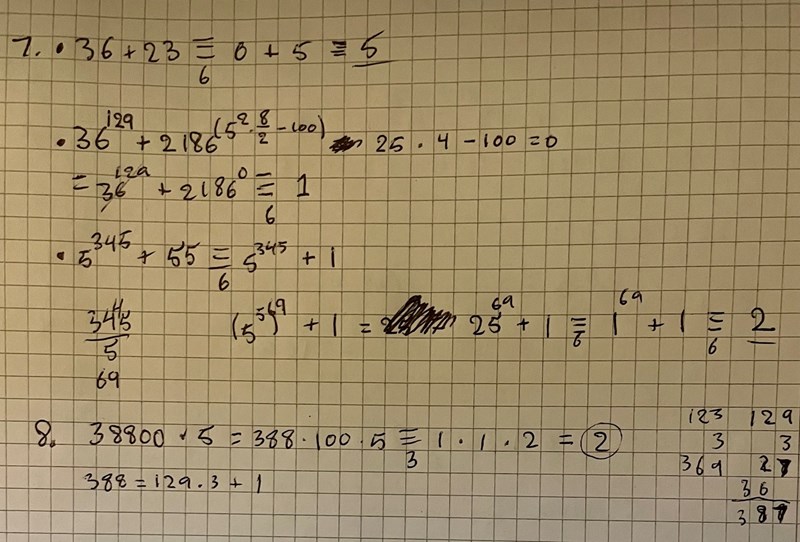 7. • 36 + 23 ≡₆ 0 + 5 ≡ 5
• 36^129 + 2186^(5^2 · 8/2 - 100) 25 · 4 - 100 = 0
= 36^129 + 2186^0 ≡₆ 1
• 5^345 + 55 ≡₆ 5^345 + 1
345/5 (5^5)^69 + 1 = 25^69 + 1 ≡₆ 1^69 + 1 ≡₆ 2
69
8. 38800 · 5 = 388 · 100 · 5 ≡₃ 1 · 1 · 2 = 2
388 = 129 · 3 + 1
123 129
3 3
369 27
36
387